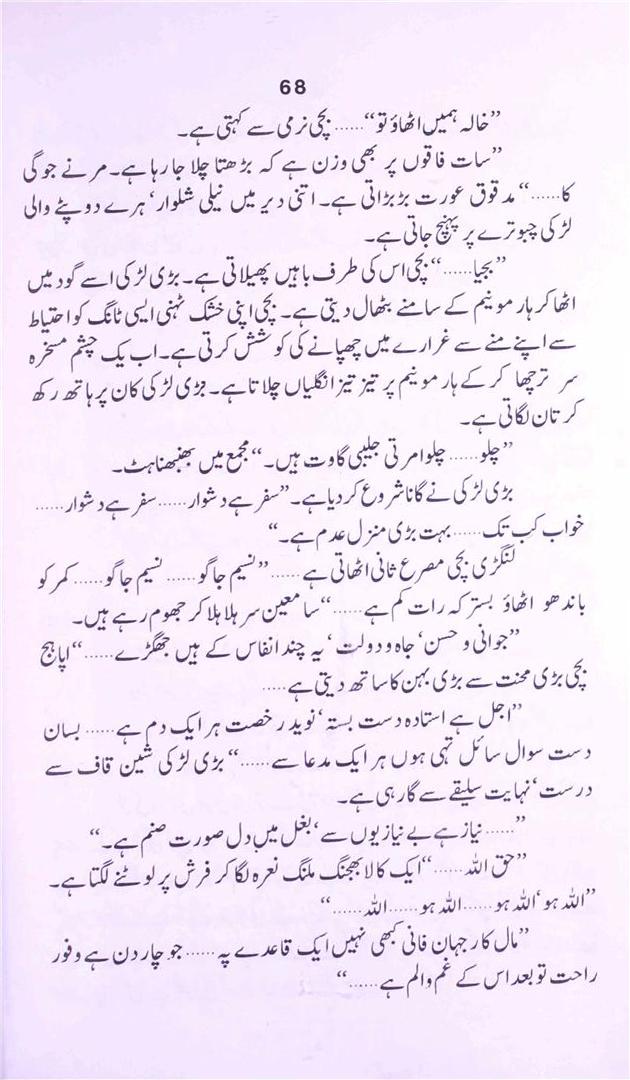 68
”خالہ ہمیں اٹھاؤ تو“...... بچی نرمی سے کہتی ہے۔
”سات فاقوں پر بھی وزن ہے کہ بڑھتا چلا جا رہا ہے۔ مرنے جوگی
کا......“ مدقوق عورت بڑبڑاتی ہے۔ اتنی دیر میں نیلی شلوار‘ ہرے دوپٹے والی
لڑکی چبوترے پر پہنچ جاتی ہے۔
”بجیا......“ بچی اس کی طرف باہیں پھیلاتی ہے۔ بڑی لڑکی اسے گود میں
اٹھا کر ہارمونیم کے سامنے بٹھال دیتی ہے۔ بچی اپنی خشک ٹہنی ایسی ٹانگ کو احتیاط
سے اپنے منے سے غرارے میں چھپانے کی کوشش کرتی ہے۔ اب یک چشم مسخرہ
سر ترچھا کر کے ہارمونیم پر تیز تیز انگلیاں چلاتا ہے۔ بڑی لڑکی کان پر ہاتھ رکھ
کر تان لگاتی ہے۔
”چلو...... چلو امرتی جلیبی گاوت ہیں۔“ مجمع میں بھنبھناہٹ۔
بڑی لڑکی نے گانا شروع کر دیا ہے۔ ”سفر ہے دشوار...... سفر ہے دشوار......
خواب کب تک...... بہت بڑی منزل عدم ہے۔“
لنگڑی بچی مصرع ثانی اٹھاتی ہے...... ”نسیم جاگو...... نسیم جاگو...... کمر کو
باندھو اٹھاؤ بستر کہ رات کم ہے......“ سامعین سر ہلا ہلا کر جھوم رہے ہیں۔
”جوانی و حسن‘ جاہ و دولت‘ یہ چند انفاس کے ہیں جھگڑے......“ اپاہج
بچی بڑی محنت سے بڑی بہن کا ساتھ دیتی ہے......
”اجل ہے استادہ دست بستہ‘ نوید رخصت ہر ایک دم ہے...... بسان
دست سوال سائل تہی ہوں ہر ایک مدعا سے......“ بڑی لڑکی شین قاف سے
درست‘ نہایت سلیقے سے گا رہی ہے۔
”...... نیاز ہے بے نیازیوں سے‘ بغل میں دل صورت صنم ہے۔“
”حق اللہ......“ ایک کالا بھجنگ ملنگ نعرہ لگا کر فرش پر لوٹنے لگتا ہے۔
”اللہ ہو‘ اللہ ہو...... اللہ ہو...... اللہ......“
”مال کار جہان فانی کبھی نہیں ایک قاعدے پہ...... جو چار دن ہے وفور
راحت تو بعد اس کے غم و الم ہے......“